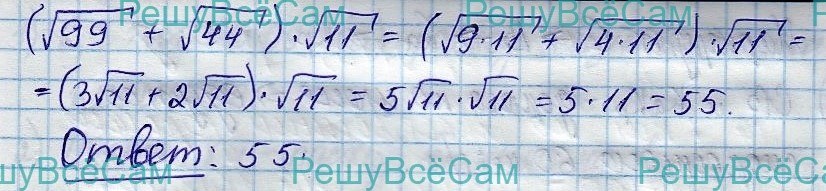 РешуВсёСам РешуВсёСам
(√99 + √44)·√11 = (√9·11 + √4·11)·√11 =
= (3√11 + 2√11)·√11 = 5√11·√11 = 5·11 = 55.
Ответ: 55.
шуВсёСам РешуВсёСам РешуВсёСам